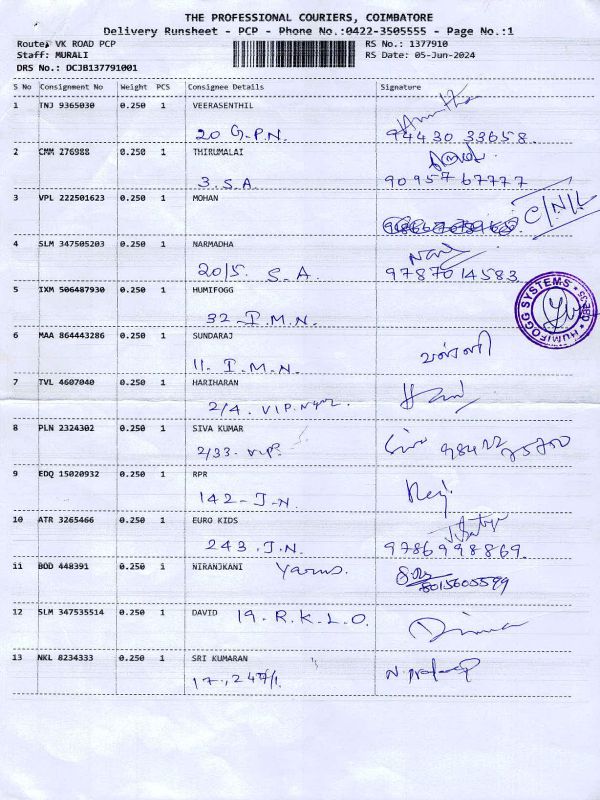 THE PROFESSIONAL COURIERS, COIMBATORE
Delivery Runsheet - PCP - Phone No.:0422-3505555 - Page No.:1
Route: VK ROAD PCP
RS No.: 1377910
Staff: MURALI
RS Date: 05-Jun-2024
DRS No.: DCJB137791001
S No Consignment No Weight PCS Consignee Details Signature
1 TNJ 9365030 0.250 1 VEERASENTHIL
20 G.P.N. 94430 33658.
2 CMM 276988 0.250 1 THIRUMALAI
3. S.A. 90957 67777
3 VPL 222501623 0.250 1 MOHAN
C/N/L
4 SLM 347505203 0.250 1 NARMADHA
20/5. S.A. 97870 14583
5 IXM 506487930 0.250 1 HUMIFOGG
32-I.M.N.
HUMIFOGG SYSTEMS
6 MAA 864443286 0.250 1 SUNDARAJ
11. I.M.N.
7 TVL 4607040 0.250 1 HARIHARAN
2/4. VIP.
8 PLN 2324302 0.250 1 SIVA KUMAR
2/33. VIP.
9 EDQ 15020932 0.250 1 RPR
142-J-N.
10 ATR 3265466 0.250 1 EURO KIDS
243.J.N. 9786998869.
11 BOD 448391 0.250 1 NIRANJKANI Yarns.
8015605599
12 SLM 347535514 0.250 1 DAVID 19.R.K.L.O.
13 NKL 8234333 0.250 1 SRI KUMARAN
N. Pradeep